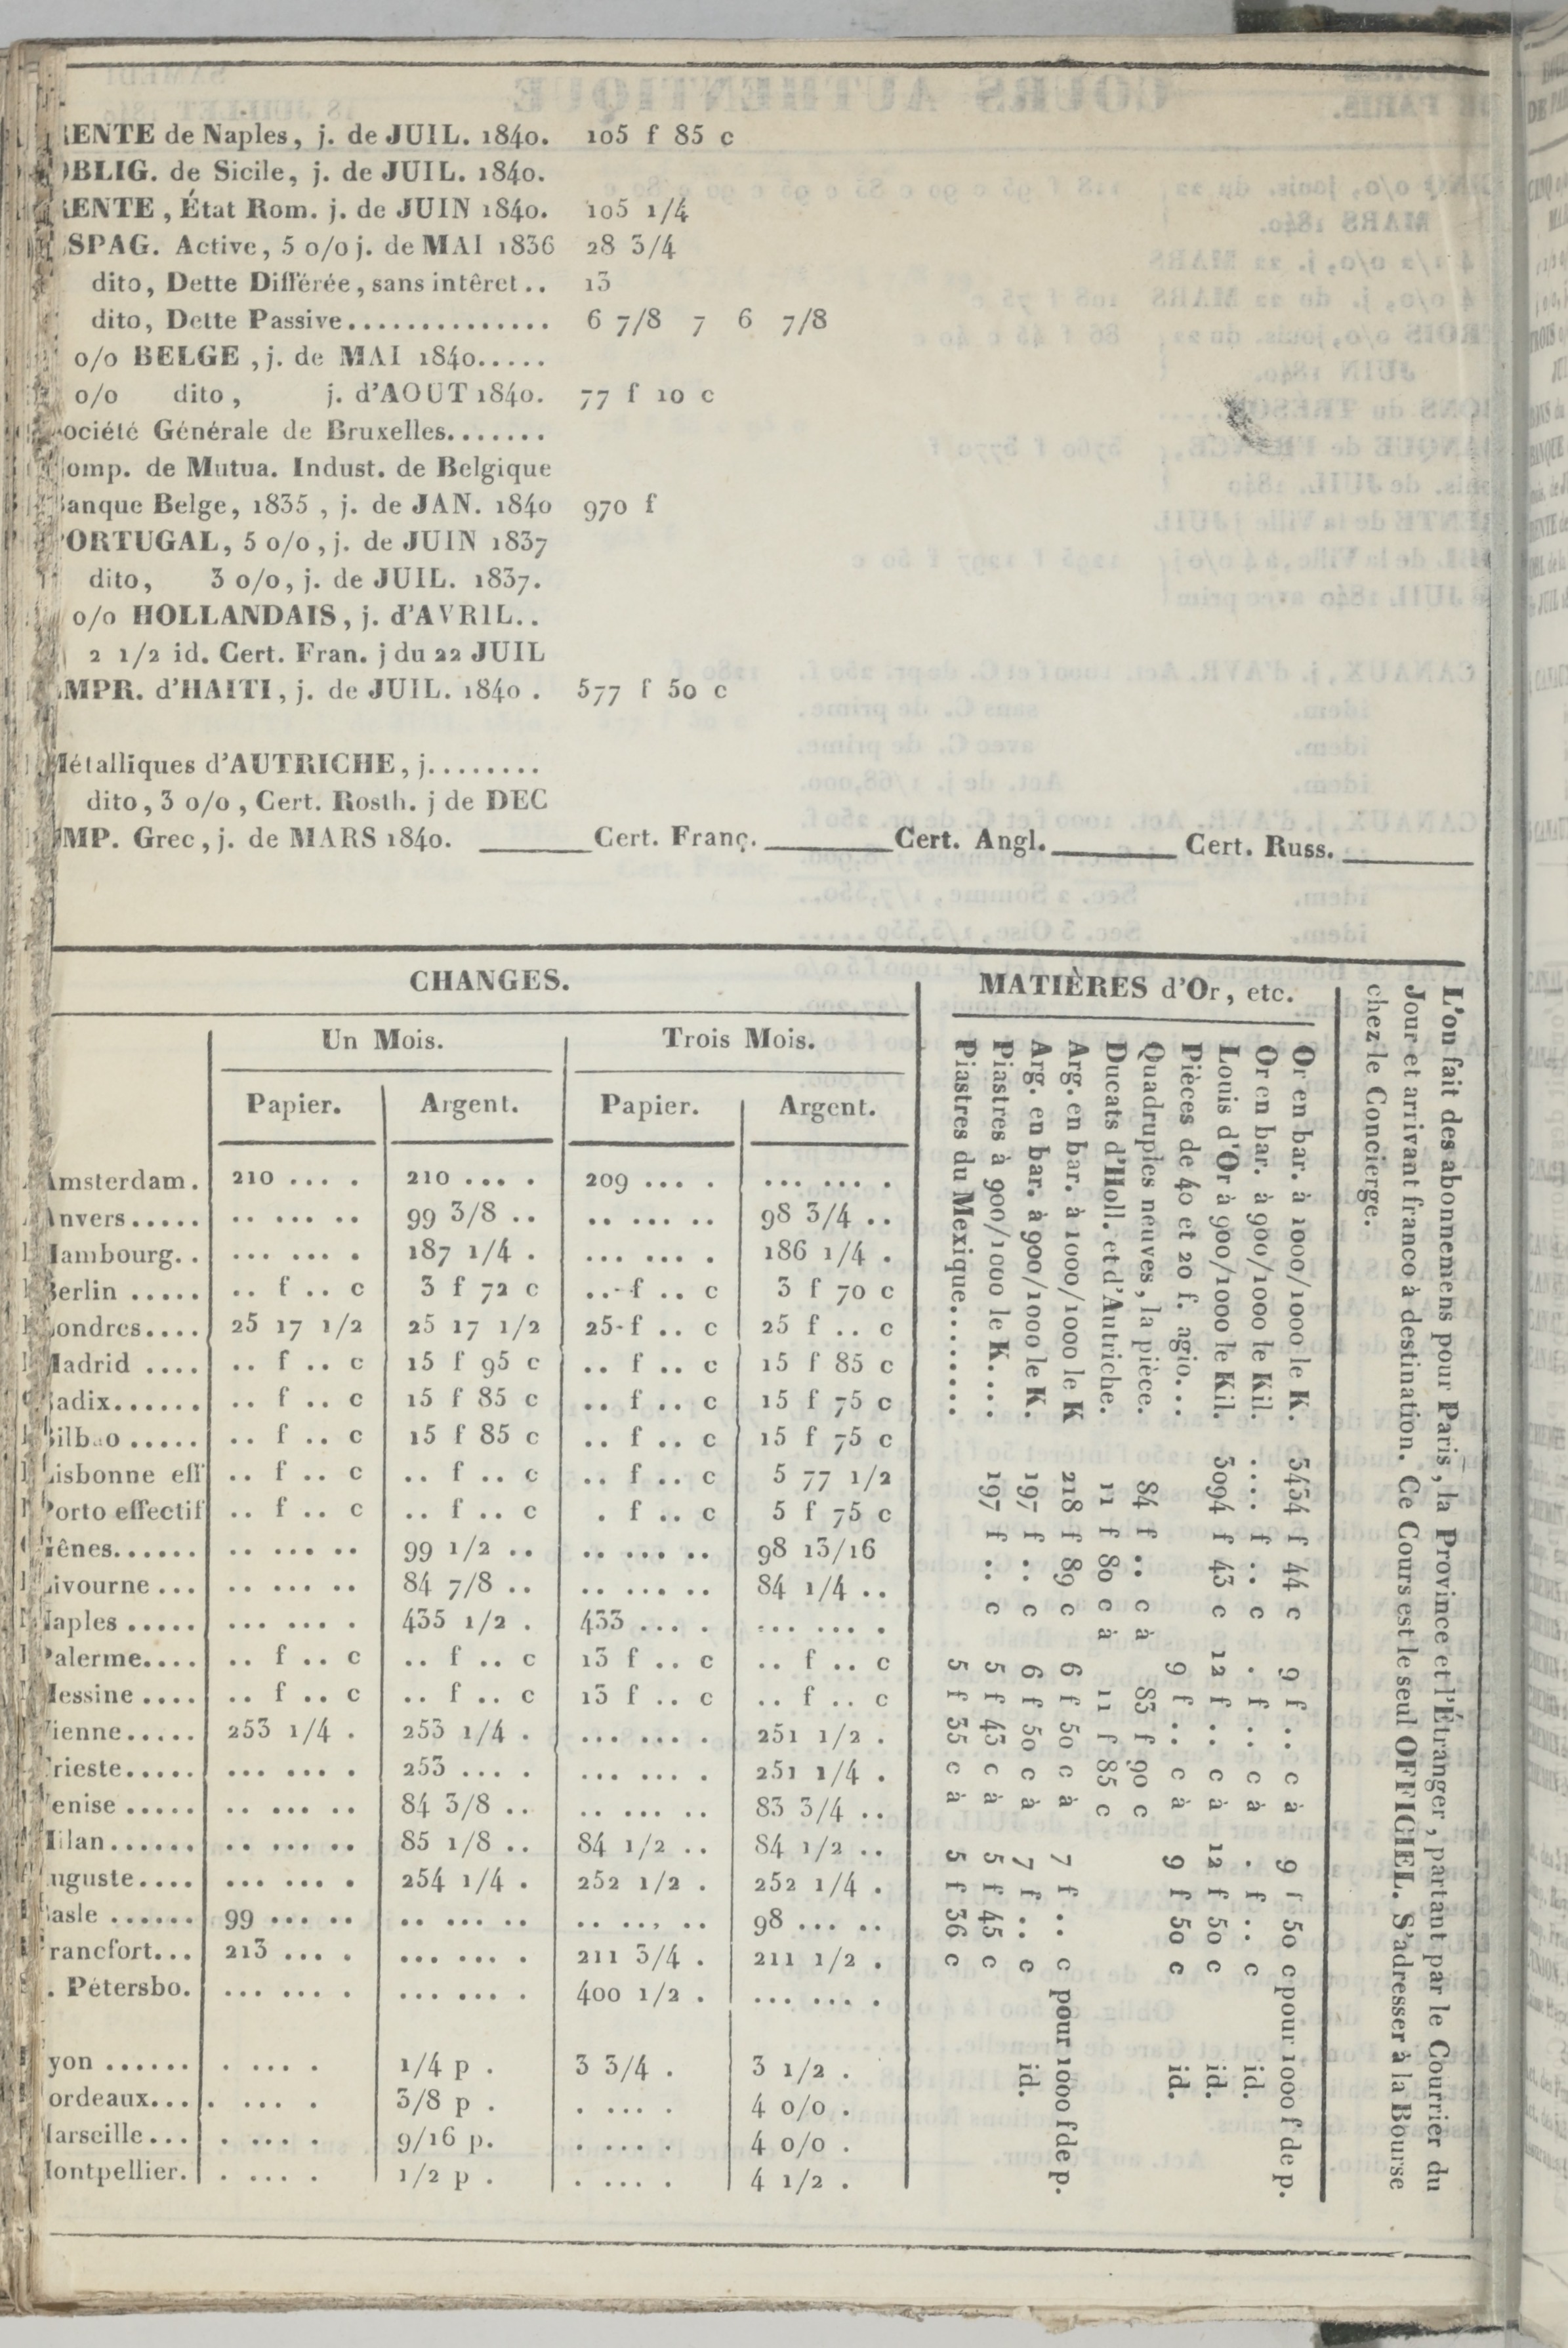 RENTE de Naples, j. de JUIL. 1840. 105 f 85 c
OBLIG. de Sicile, j. de JUIL. 1840.
RENTE, État Rom. j. de JUIN 1840. 105 1/4
ESPAG. Active, 5 0/0 j. de MAI 1836 28 3/4
dito, Dette Différée, sans intêret.. 13
dito, Dette Passive.............. 6 7/8 7 6 7/8
0/0 BELGE, j. de MAI 1840.....
0/0 dito, j. d'AOUT 1840. 77 f 10 c
Société Générale de Bruxelles.......
Comp. de Mutua. Indust. de Belgique
Banque Belge, 1835, j. de JAN. 1840 970 f
PORTUGAL, 5 0/0, j. de JUIN 1837
dito, 3 0/0, j. de JUIL. 1837.
0/0 HOLLANDAIS, j. d'AVRIL..
2 1/2 id. Cert. Fran. j du 22 JUIL
EMPR. d'HAITI, j. de JUIL. 1840. 577 f 50 c
Métalliques d'AUTRICHE, j........
dito, 3 0/0, Cert. Rosth. j de DEC
EMP. Grec, j. de MARS 1840. ____ Cert. Franç. ____ Cert. Angl. ____ Cert. Russ. ____
CHANGES.
Un Mois. Trois Mois.
Papier. Argent. Papier. Argent.
Amsterdam. 210 ... . 210 ... . 209 ... . ... ... .
Anvers..... .. ... .. 99 3/8 .. .. ... .. 98 3/4 ..
Hambourg.. ... ... . 187 1/4 . ... ... . 186 1/4 .
Berlin ..... .. f .. c 3 f 72 c .. f .. c 3 f 70 c
Londres.... 25 17 1/2 25 17 1/2 25 f .. c 25 f .. c
Madrid .... .. f .. c 15 f 95 c .. f .. c 15 f 85 c
Cadix...... .. f .. c 15 f 85 c .. f .. c 15 f 75 c
Bilbao ..... .. f .. c 15 f 85 c .. f .. c 15 f 75 c
Lisbonne eff .. f .. c .. f .. c .. f .. c 5 77 1/2
Porto effectif .. f .. c .. f .. c . f .. c 5 f 75 c
Gênes...... .. ... .. 99 1/2 .. .. ... .. 98 13/16
Livourne ... .. ... .. 84 7/8 .. .. ... .. 84 1/4 ..
Naples ..... ... ... . 435 1/2 . 433 ... . ... ... .
Palerme.... .. f .. c .. f .. c 13 f .. c .. f .. c
Messine .... .. f .. c .. f .. c 13 f .. c .. f .. c
Vienne..... 253 1/4 . 253 1/4 . ... ... . 251 1/2 .
Trieste..... ... ... . 253 ... . ... ... . 251 1/4 .
Venise ..... .. ... .. 84 3/8 .. .. ... .. 83 3/4 ..
Milan...... .. ... .. 85 1/8 .. 84 1/2 .. 84 1/2 ..
Auguste.... ... ... . 254 1/4 . 252 1/2 . 252 1/4 .
Basle ...... 99 ... .. .. ... .. .. ... .. 98 ... ..
Francfort... 213 ... . ... ... . 211 3/4 . 211 1/2 .
. Pétersbo. ... ... . ... ... . 400 1/2 . ... ... .
Lyon ...... . .... . 1/4 p . 3 3/4 . 3 1/2 .
Bordeaux... . .... . 3/8 p . . .... . 4 0/0 .
Marseille... . .... . 9/16 p. . .... . 4 0/0 .
Montpellier. . .... . 1/2 p . . .... . 4 1/2 .
MATIÈRES d'Or, etc.
Or en bar. à 1000/1000 le K. 3434 f 44 c 9 f .. c à 9 f 50 c pour 1000 f de p.
Or en bar. à 900/1000 le Kil. .... f .. c . f .. c à . f .. c id.
Louis d'Or à 900/1000 le Kil. 3094 f 43 c 12 f .. c à 12 f 50 c id.
Pièces de 40 et 20 f. agio... 9 f .. c à 9 f 50 c id.
Quadruples neuves, la pièce. 84 f .. c à 83 f 90 c
Ducats d'Holl. et d'Autriche. 11 f 80 c à 11 f 85 c
Arg. en bar. à 1000/1000 le K 218 f 89 c 6 f 50 c à 7 f .. c pour 1000 f de p.
Arg. en bar. à 900/1000 le K. 197 f .. c 6 f 50 c à 7 f .. c id.
Piastres à 900/1000 le K.... 197 f .. c 5 f 43 c à 5 f 45 c
Piastres du Mexique........ 5 f 35 c à 5 f 36 c
L'on fait des abonnemens pour Paris, la Province et l'Étranger, partant par le Courrier du
Jour et arrivant franco à destination. Ce Cours est le seul OFFICIEL. S'adresser à la Bourse
chez le Concierge.